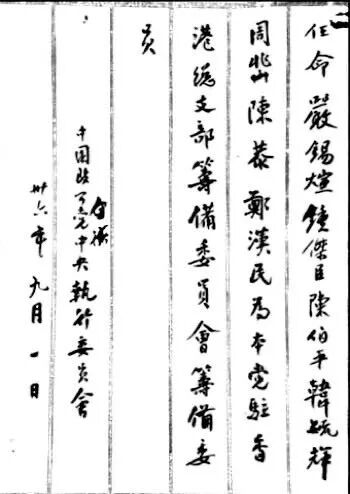 任命嚴錫煊鍾傑臣陳伯平韓毓輝
周兆山陳恭鄭漢民為本党駐香
港總支部籌備委員會籌備委
員
中国致公党中央執行委員會
卅六年九月一日